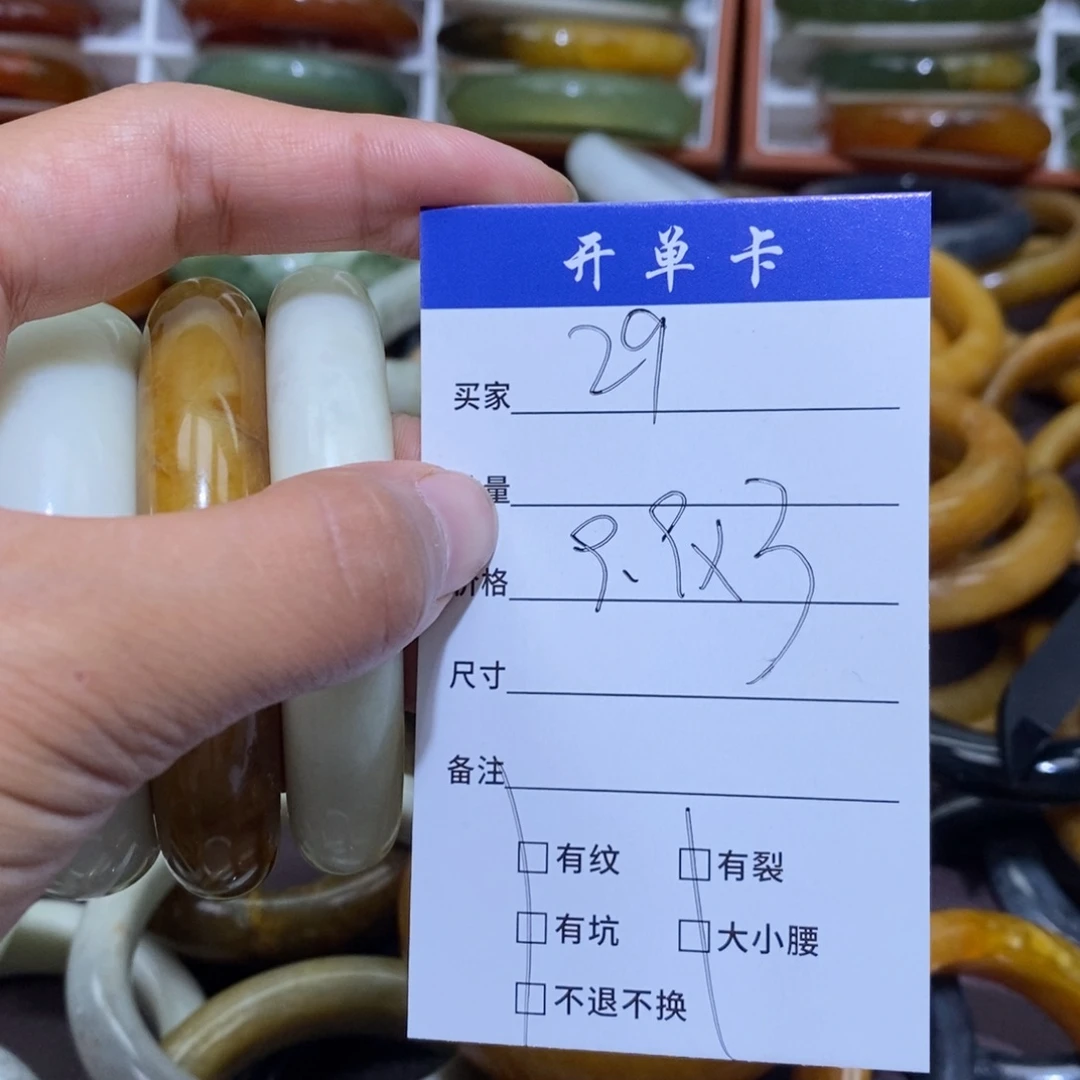 开单卡
29
买家
量
9.9x3
价格
尺寸
备注
有纹 有裂
有坑 大小腰
不退不换